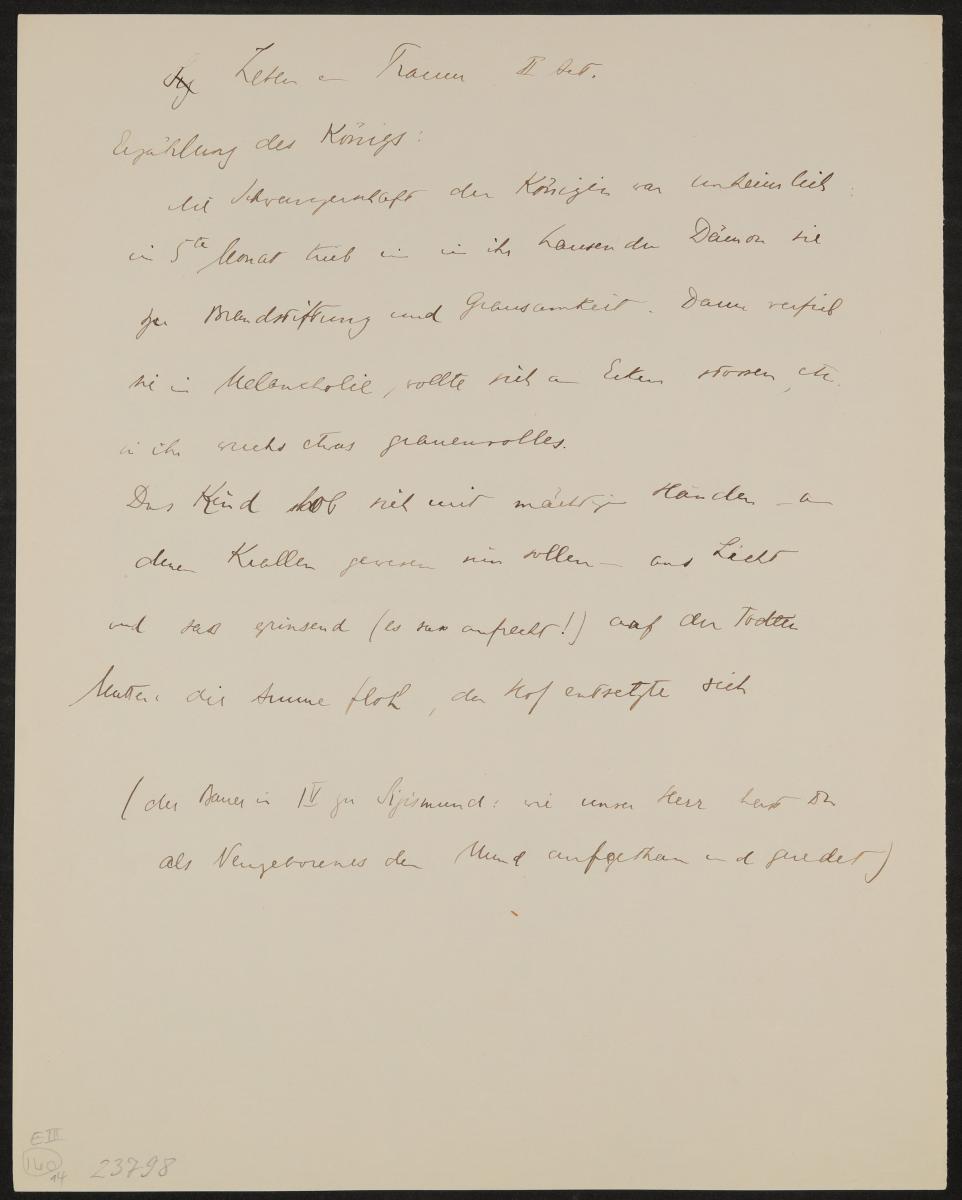 Leben ein Traum II Act.
Erzählung des Königs:
die Schwangerschaft der Königin war unheimlich:
im 5te Monat trieb ein in ihr hausender Dämon sie
zu Brandstiftung und Grausamkeit. Dann verfiel
sie in Melancholie, wollte sich an Ecken stossen, etc.
in ihr wuchs etwas grauenvolles.
Das Kind hob sich mit mächtigen Händen – an
denen Krallen gewesen sein sollen – ans Licht
und sass grinsend (es sass aufrecht!) auf der Todten
Mutter: die Amme floh, der Hof entsetzte sich
(der Bauer in IV zu Sigismund: wie unser Herr hast Du
als Neugeborenes den Mund aufgethan und geredet)
E III
140
14
23798